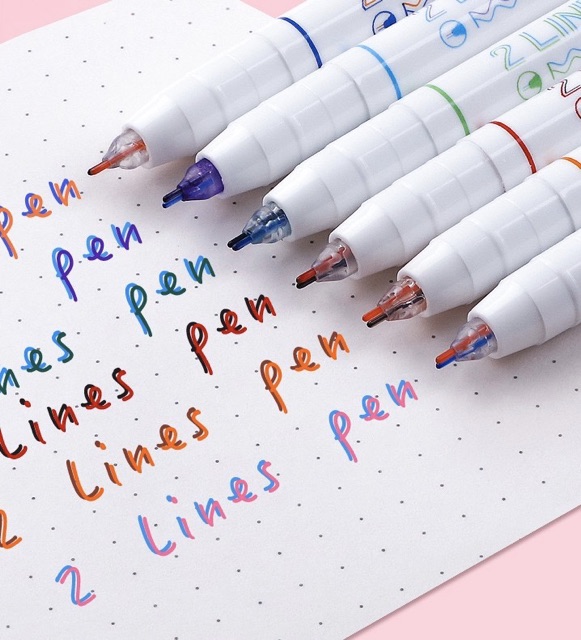 pen
pen
pen
lines pen
lines pen
2 lines pen
2 LIN